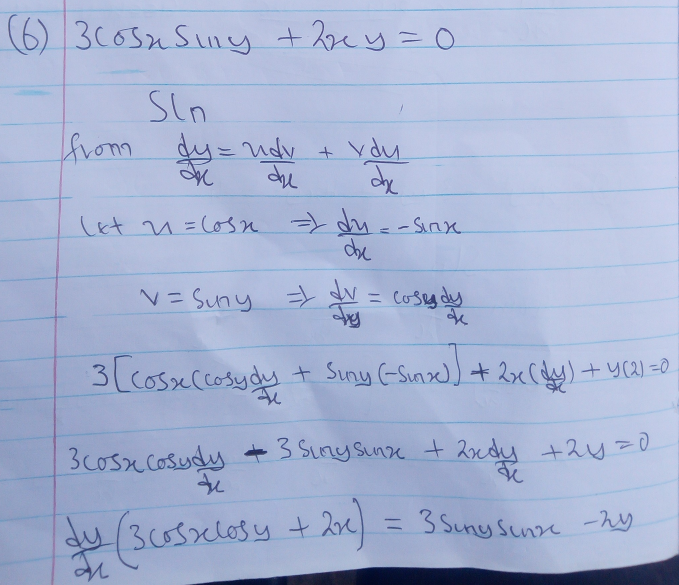 (6) 3cosx siny + 2xy = 0
Sln
from dy/dx = udv/dx + vdu/dx
let u = cosx ⇒ du/dx = -sinx
v = siny ⇒ dv/dx = cosy dy/dx
3[cosx(cosy dy/dx + siny(-sinx)] + 2x(dy/dx) + y(2) = 0
3cosxcosy dy/dx - 3sinysinx + 2x dy/dx + 2y = 0
dy/dx (3cosxcosy + 2x) = 3sinysinx - 2y